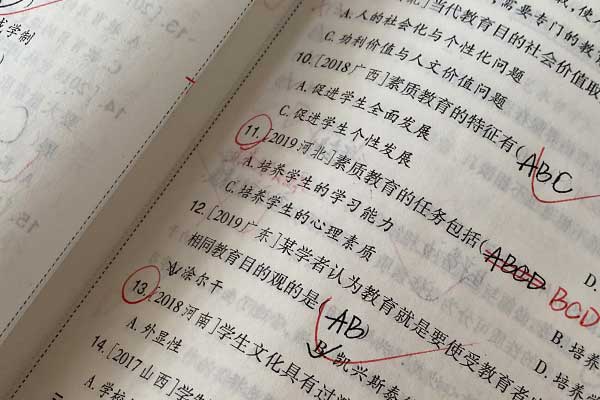 成学制
需要专门的教
]当代教育目的社会价值取
A.人的社会化与个性化问题
C.功利价值与人文价值问题
10.[2018广西]素质教育的特征有(ABC
A.促进学生全面发展
C.促进学生个性发展
11.[2019河北]素质教育的任务包括(ABCD BCD
A.培养学生的学习能力
D.
C.培养学生的心理素质
B.培养
12.[2019广东]某学者认为教育就是要使受教育者
D.培养学
相同教育目的观的是(AB)
涂尔干
B.凯兴斯泰
13.[2018河南]学生文化具有过
A.外显性
14.[2017山西]学
A.学校